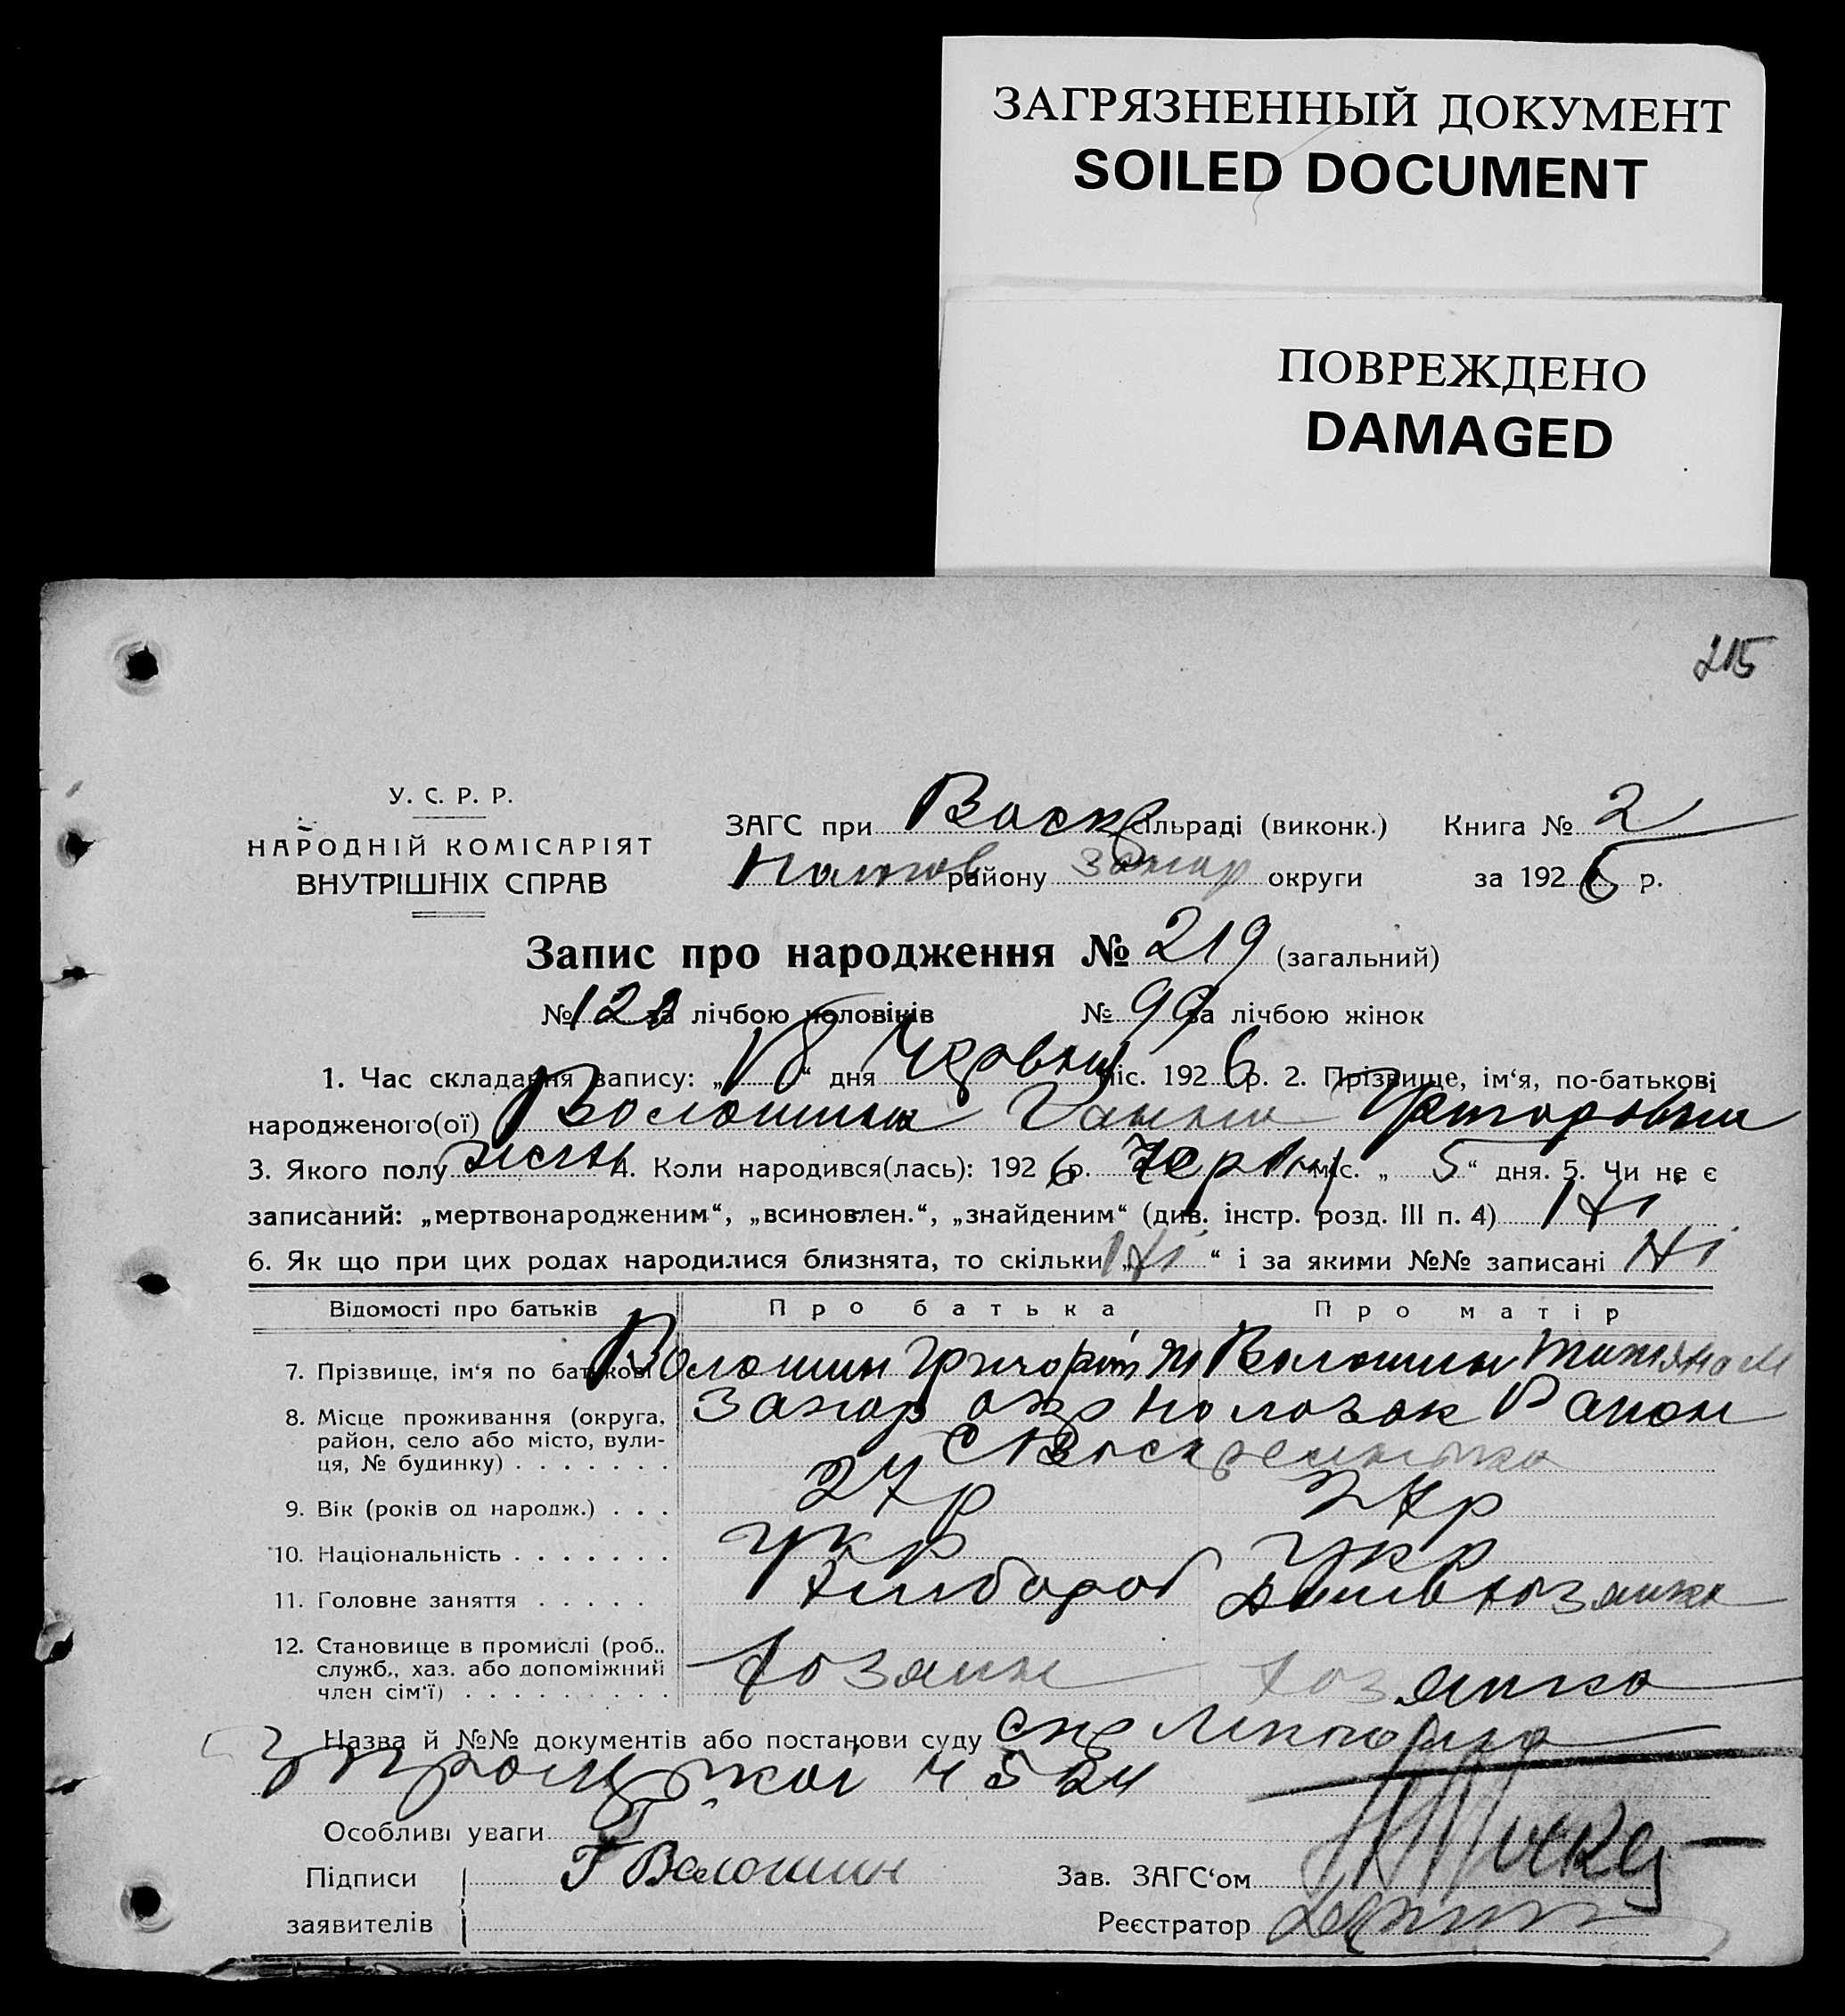 ЗАГРЯЗНЕННЫЙ ДОКУМЕНТ
SOILED DOCUMENT
ПОВРЕЖДЕНО
DAMAGED
215
У. С. Р. Р.
НАРОДНІЙ КОМІСАРІЯТ
ВНУТРІШНІХ СПРАВ
ЗАГС при Воскр сільраді (виконк.) Книга № 2
району Запор округи за 1926 р.
Запис про народження № 219 (загальний)
№ 122 за лічбою чоловіків № 99 за лічбою жінок
1. Час складання запису: „ “ дня Червня міс. 1926 р. 2. Прізвище, ім‘я, по-батькові
народженого(ої) Волошина Ганна Григоровна
3. Якого полу жен 4. Коли народився(лась): 1926 р. Червня міс. „ 5 “ дня. 5. Чи не є
записаний: „мертвонародженим“, „всиновлен.“, „знайденим“ (див. інстр. розд. III п. 4) Ні
6. Як що при цих родах народилися близнята, то скільки „ Ні “ і за якими №№ записані Ні
Відомості про батьків Про батька Про матір
7. Прізвище, ім‘я по батькові Волошин Григорій Волошин
8. Місце проживання (округа, Запор окр Пологак Район
район, село або місто, вули-
ця, № будинку) . . . . . . . С Воскресенка
9. Вік (років од народж.) . . . 27р 27р
10. Національність . . . . . . . укр укр
11. Головне заняття . . . . . Хлібороб Хозяйка
12. Становище в промислі (роб.,
служб., хаз. або допоміжний Хозяин Хозяйка
член сім‘ї) . . . . . . . . .
Назва й №№ документів або постанови суду
Особливі уваги
Підписи Г Волошин Зав. ЗАГС‘ом
заявителів Реєстратор